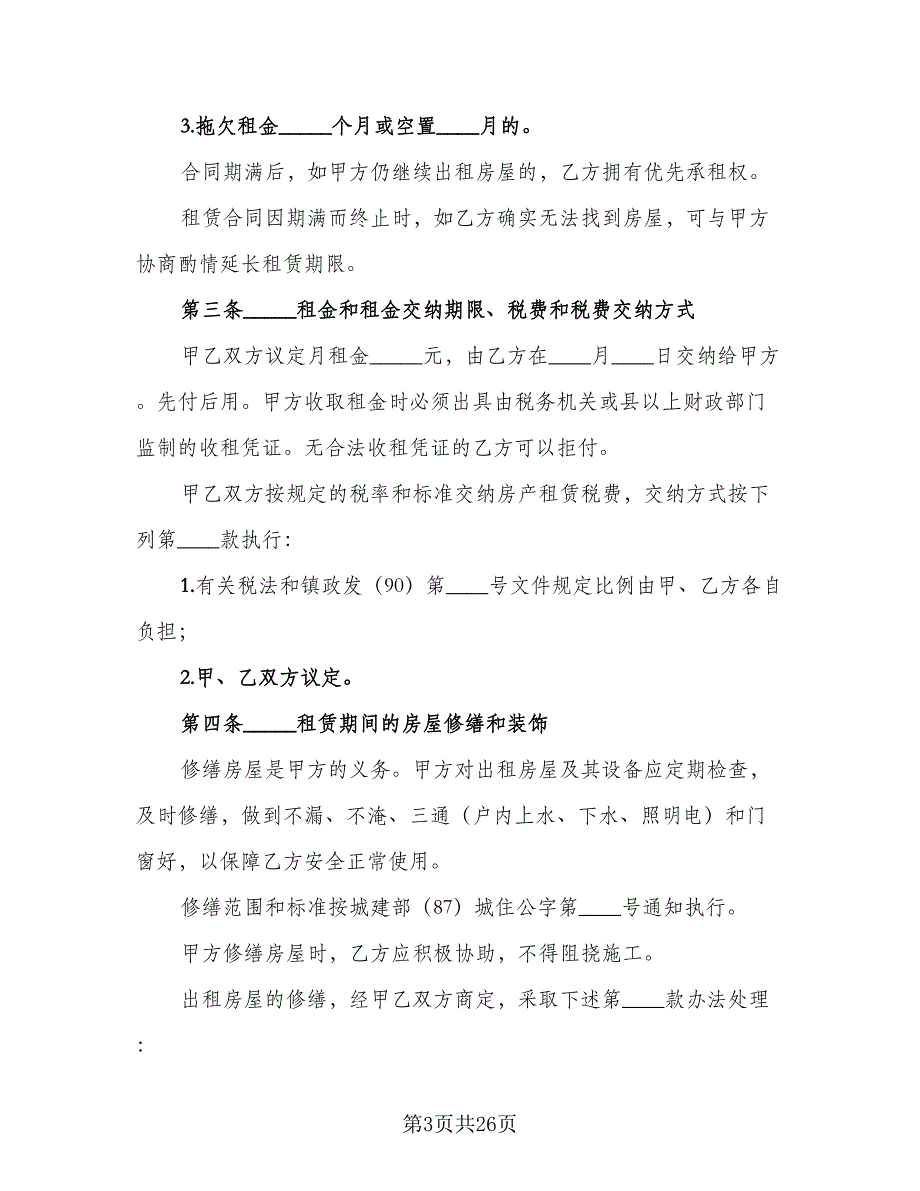 3.拖欠租金_____个月或空置____月的。
合同期满后，如甲方仍继续出租房屋的，乙方拥有优先承租权。
租赁合同因期满而终止时，如乙方确实无法找到房屋，可与甲方
协商酌情延长租赁期限。
第三条_____租金和租金交纳期限、税费和税费交纳方式
甲乙双方议定月租金_____元，由乙方在____月____日交纳给甲方
。先付后用。甲方收取租金时必须出具由税务机关或县以上财政部门
监制的收租凭证。无合法收租凭证的乙方可以拒付。
甲乙双方按规定的税率和标准交纳房产租赁税费，交纳方式按下
列第____款执行：
1.有关税法和镇政发（90）第____号文件规定比例由甲、乙方各自
负担；
2.甲、乙双方议定。
第四条_____租赁期间的房屋修缮和装饰
修缮房屋是甲方的义务。甲方对出租房屋及其设备应定期检查，
及时修缮，做到不漏、不淹、三通（户内上水、下水、照明电）和门
窗好，以保障乙方安全正常使用。
修缮范围和标准按城建部（87）城住公字第____号通知执行。
甲方修缮房屋时，乙方应积极协助，不得阻挠施工。
出租房屋的修缮，经甲乙双方商定，采取下述第____款办法处理
：
第3页共26页